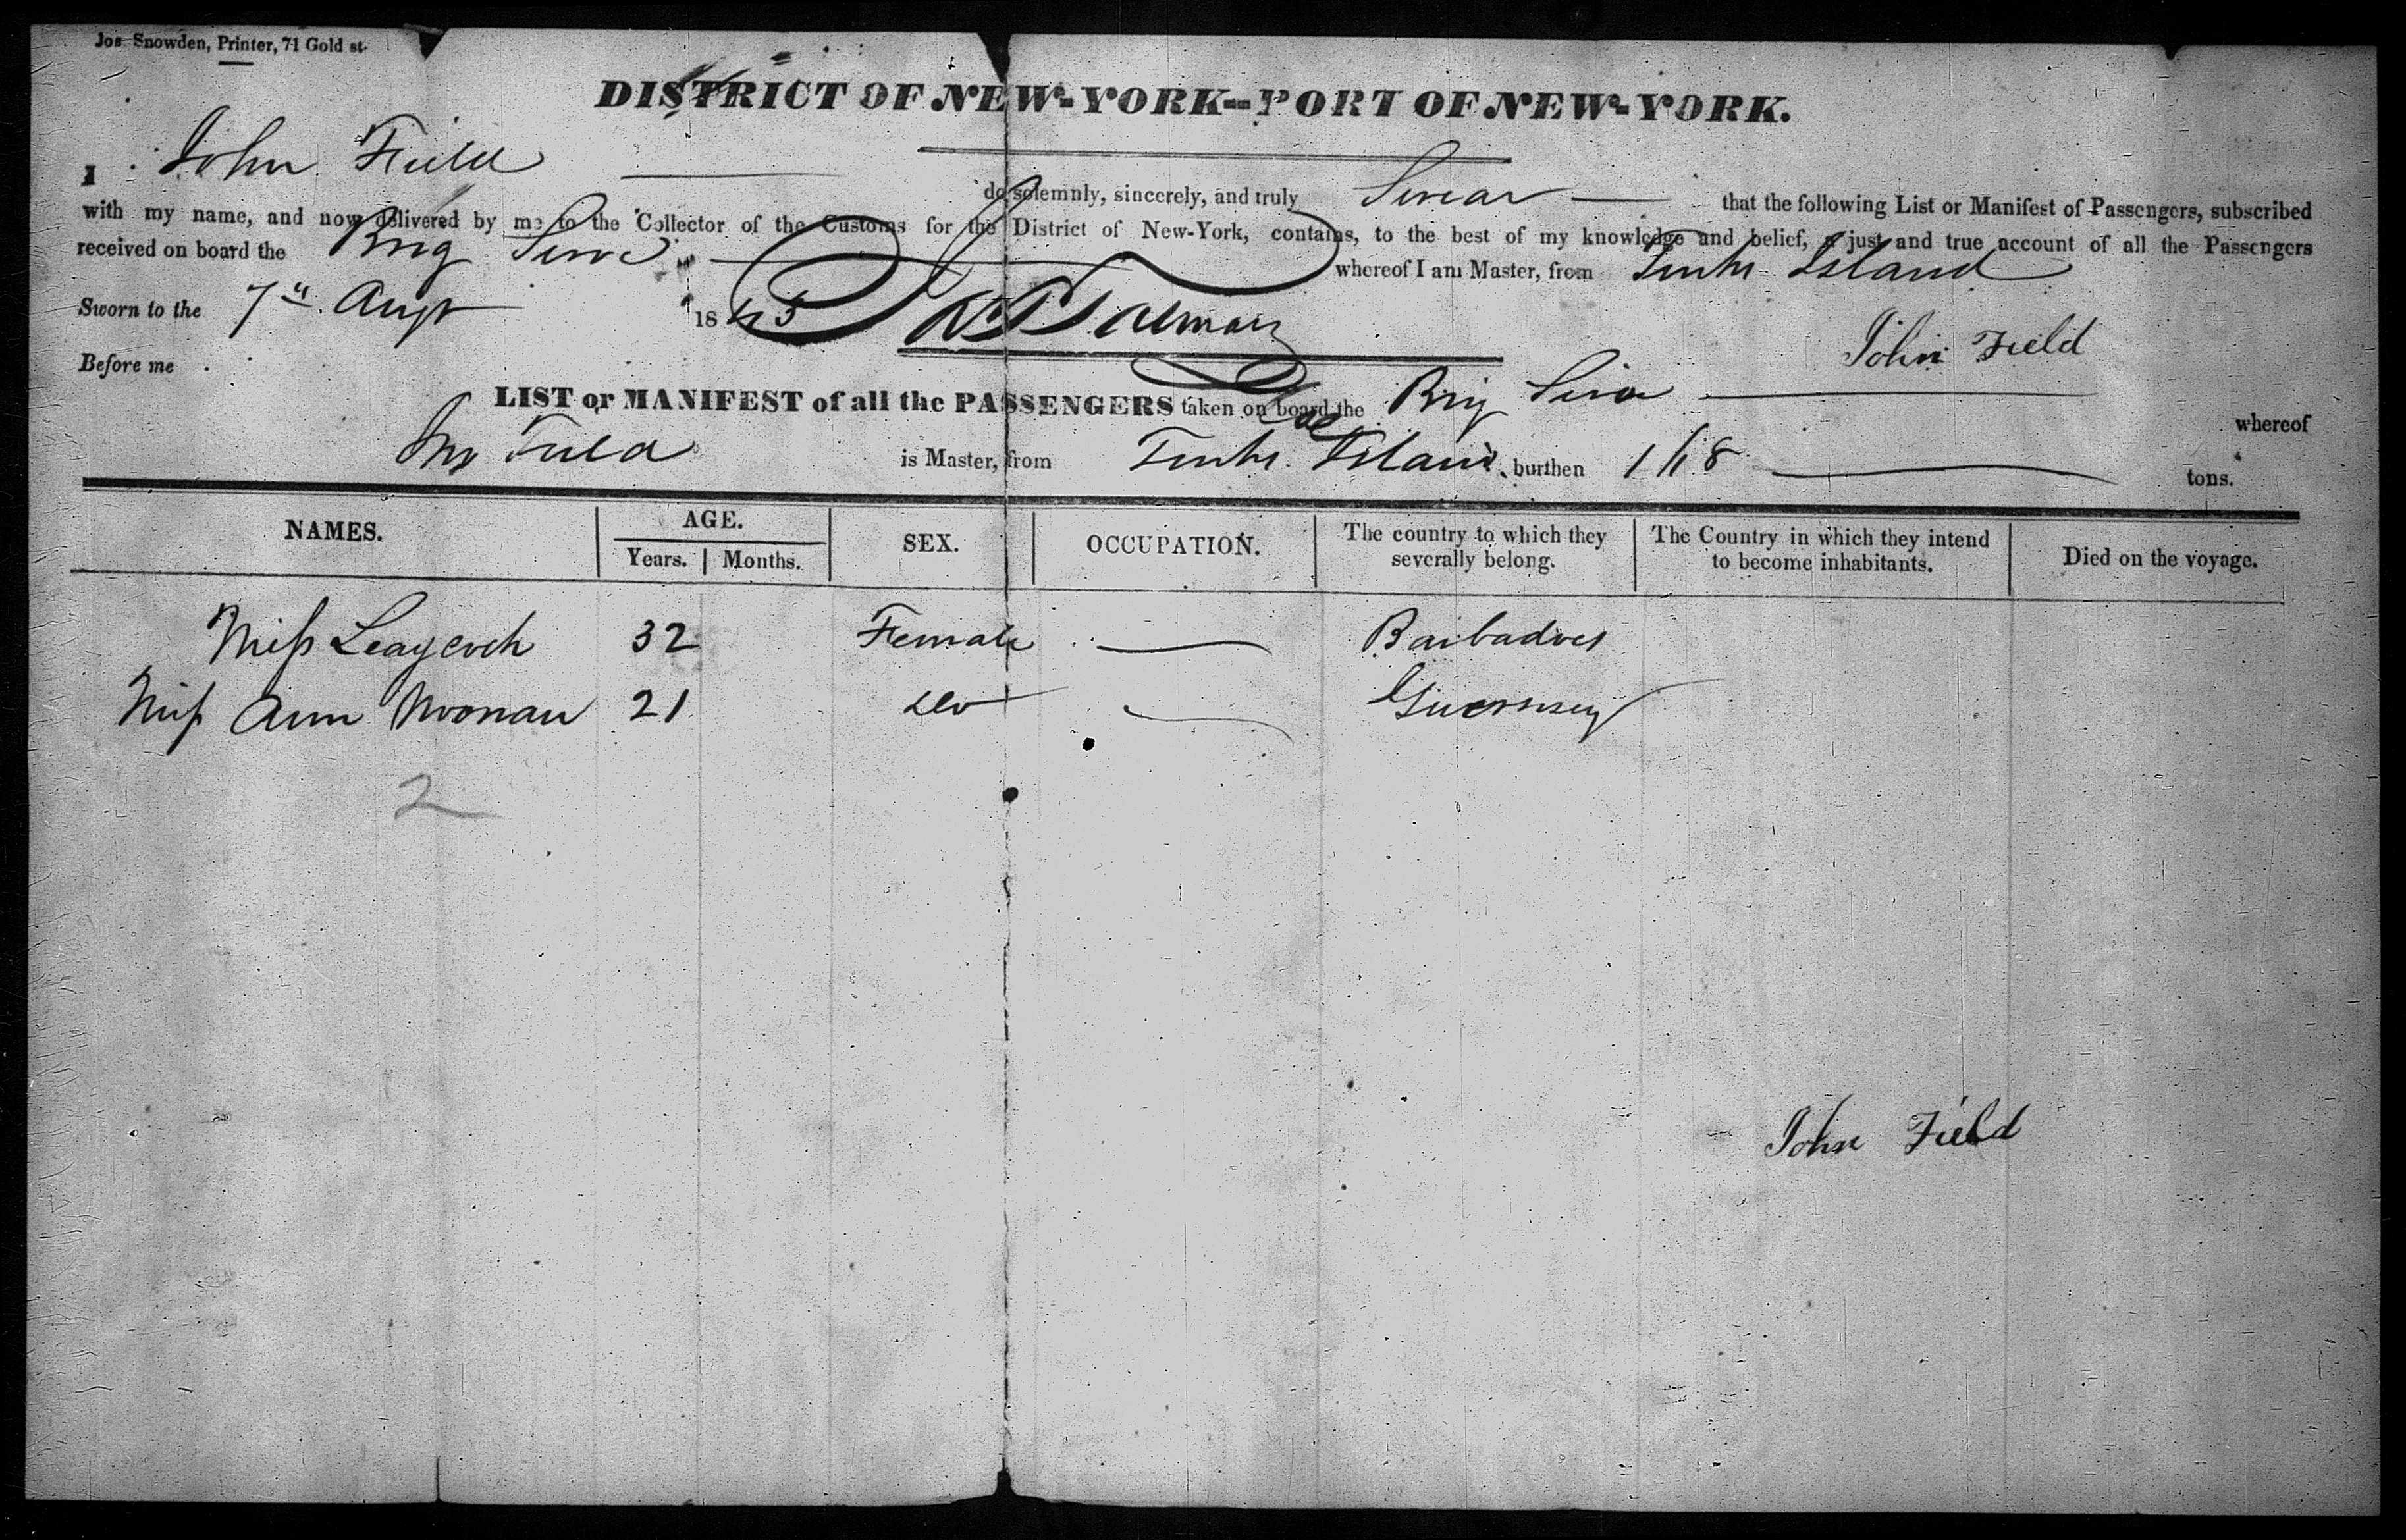 Jos. Snowden, Printer, 71 Gold st.
DISTRICT OF NEW-YORK--PORT OF NEW-YORK.
I John Field do solemnly, sincerely, and truly Swear that the following List or Manifest of Passengers, subscribed
with my name, and now delivered by me to the Collector of the Customs for the District of New-York, contains, to the best of my knowledge and belief, a just and true account of all the Passengers
received on board the Brig whereof I am Master, from Turks Island
Sworn to the 7" Augt 1845
John Field
Before me
LIST or MANIFEST of all the PASSENGERS taken on board the Brig whereof
Field is Master, from Turks Island burthen 168 tons.
NAMES. AGE. SEX. OCCUPATION. The country to which they severally belong. The Country in which they intend to become inhabitants. Died on the voyage.
Years. Months.
Miss Leaycock 32 Female Barbadoes
Miss Ann Noonan 21 do Guernsey
2
John Field